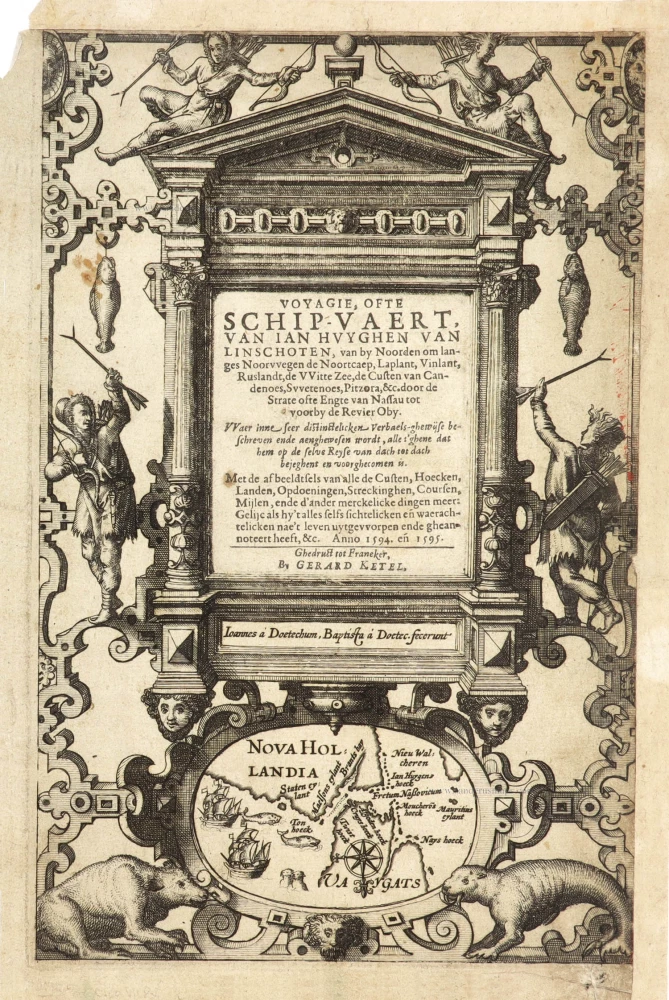 VOYAGIE, OFTE
SCHIP-VAERT,
VAN IAN HVYGHEN VAN
LINSCHOTEN, van by Noorden om lan-
ges Noorvvegen de Noortcaep, Laplant, Vinlant,
Ruslandt, de VVitte Zee, de Custen van Can-
denoes, Svvetenoes, Pitzora, &c. door de
Strate ofte Engte van Nassau tot
voorby de Revier Oby.
VVaer inne seer distinctelicken Verbaels-ghewijse be-
schreven ende aenghewesen wordt, alle t'ghene dat
hem op de selve Reyse van dach tot dach
bejeghent en voorghecomen is.
Met de afbeeldtsels van alle de Custen, Hoecken,
Landen, Opdoeningen, Streckinghen, Coursen,
Mijlen, ende d'ander merckelicke dingen meer:
Gelijc als hy't alles selfs sichtelicken eñ waerach-
telicken nae't leven uytgevvorpen ende ghean-
noteert heeft, &c. Anno 1594. eñ 1595.
Ghedruct tot Franeker,
By GERARD KETEL,
Ioannes à Doetechum, Baptista à Doetec. fecerunt
NOVA HOL-
LANDIA
Staten ey
lant
Ton
hoeck
Nieu Wal-
cheren
Ian Huygens
hoeck
Fretum Nassovicum
Moucherōs
hoeck
Mauritius
eylant
Nays hoeck
VA YGATS